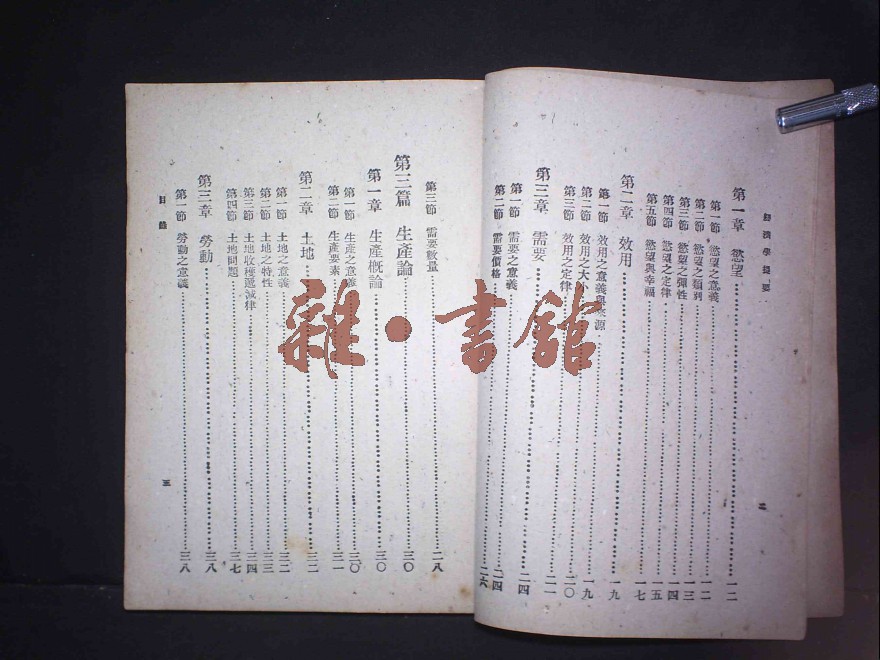 經濟學提要
第一章 慾望 一二
第一節 慾望之意義 一二
第二節 慾望之類別 一三
第三節 慾望之彈性 一四
第四節 慾望之定律 一五
第五節 慾望與幸福 一七
第二章 效用 一九
第一節 效用之意義與來源 一九
第二節 效用之大小 二〇
第三節 效用之定律 二一
第三章 需要 二四
第一節 需要之意義 二四
第二節 需要價格 二六
二
第三節 需要數量 二八
第三篇 生產論 三〇
第一章 生產概論 三〇
第一節 生產之意義 三〇
第二節 生產要素 三一
第二章 土地 三二
第一節 土地之意義 三二
第二節 土地之特性 三三
第三節 土地收穫遞減律 三四
第四節 土地問題 三七
第三章 勞動 三八
第一節 勞動之意義 三八
目錄
三
雜·書館